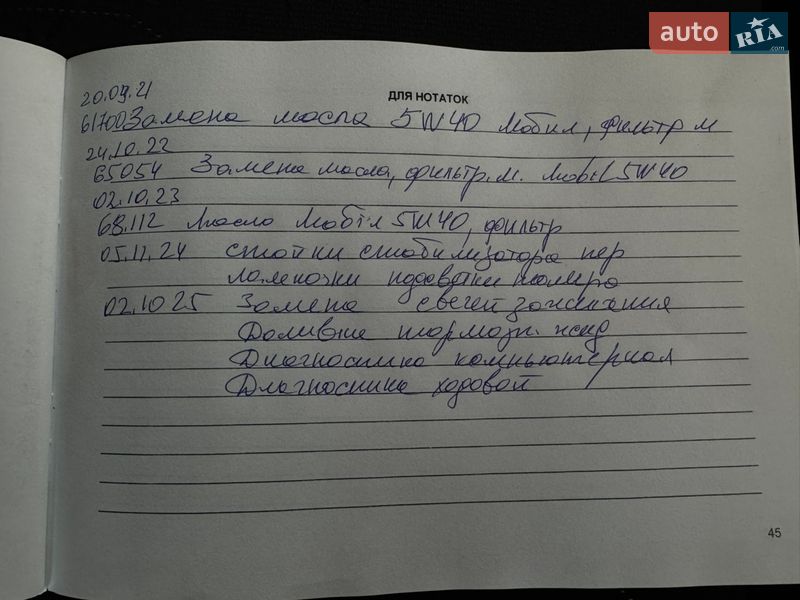 auto RIA .com
ДЛЯ НОТАТОК
20.09.21
61700 Замена масла 5W40 Мобил, фильтр м
24.10.22
65054 Замена масла, фильтр. м. Mobil 5W40
02.10.23
68.112 Масло Мобіл 5W40, фильтр
05.11.24 стойки стабилизатора пер
лампочки подсветки номера
02.10 25 Замена свечей зажигания
Доливше тормозн. жид
Диагностика компьютерная
Диагностика ходовой
45